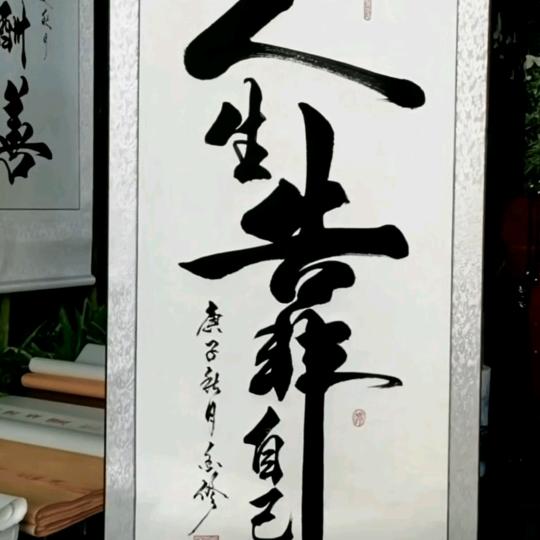 人生靠自己
庚子秋月
酬
善